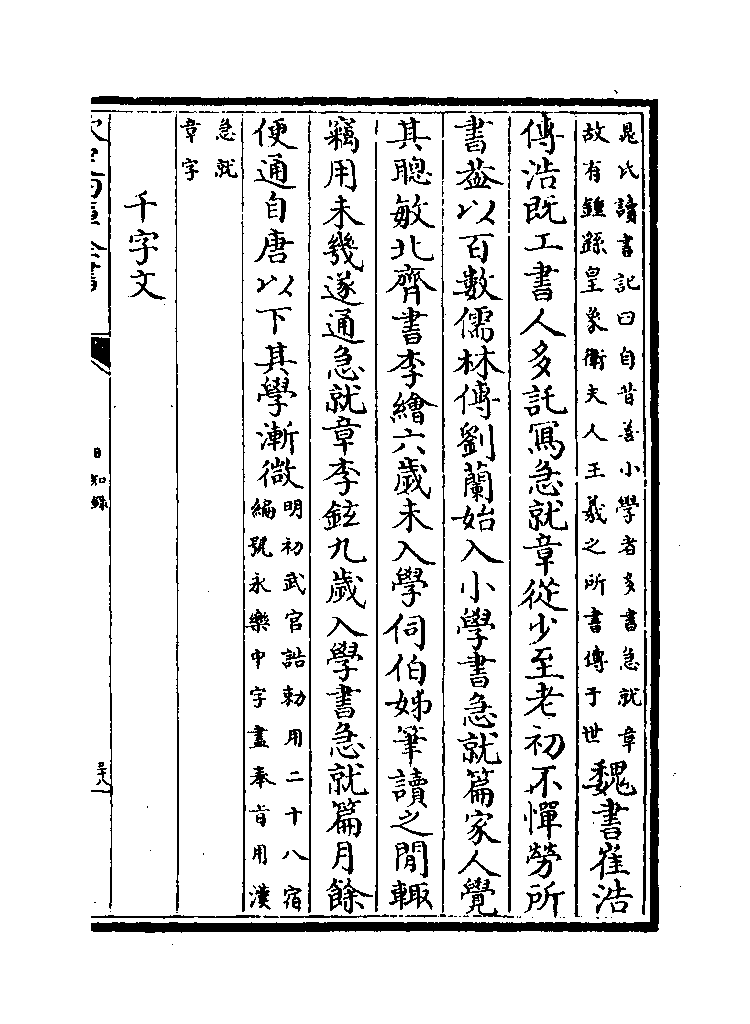 晁氏讀書記曰自昔善小學者多書急就章
故有鍾繇皇象衛夫人王羲之所書傳于世
魏書崔浩
傳浩既工書人多託寫急就章從少至老初不憚勞所
書葢以百數儒林傳劉蘭始入小學書急就篇家人覺
其聰敏北齊書李繪六歲未入學伺伯姊筆讀之閒輙
竊用未幾遂通急就章李鉉九歲入學書急就篇月餘
便通自唐以下其學漸微
明初武官誥勅用二十八宿
編號永樂中字盡奉㫖用漢
急就
章字
千字文
日知錄